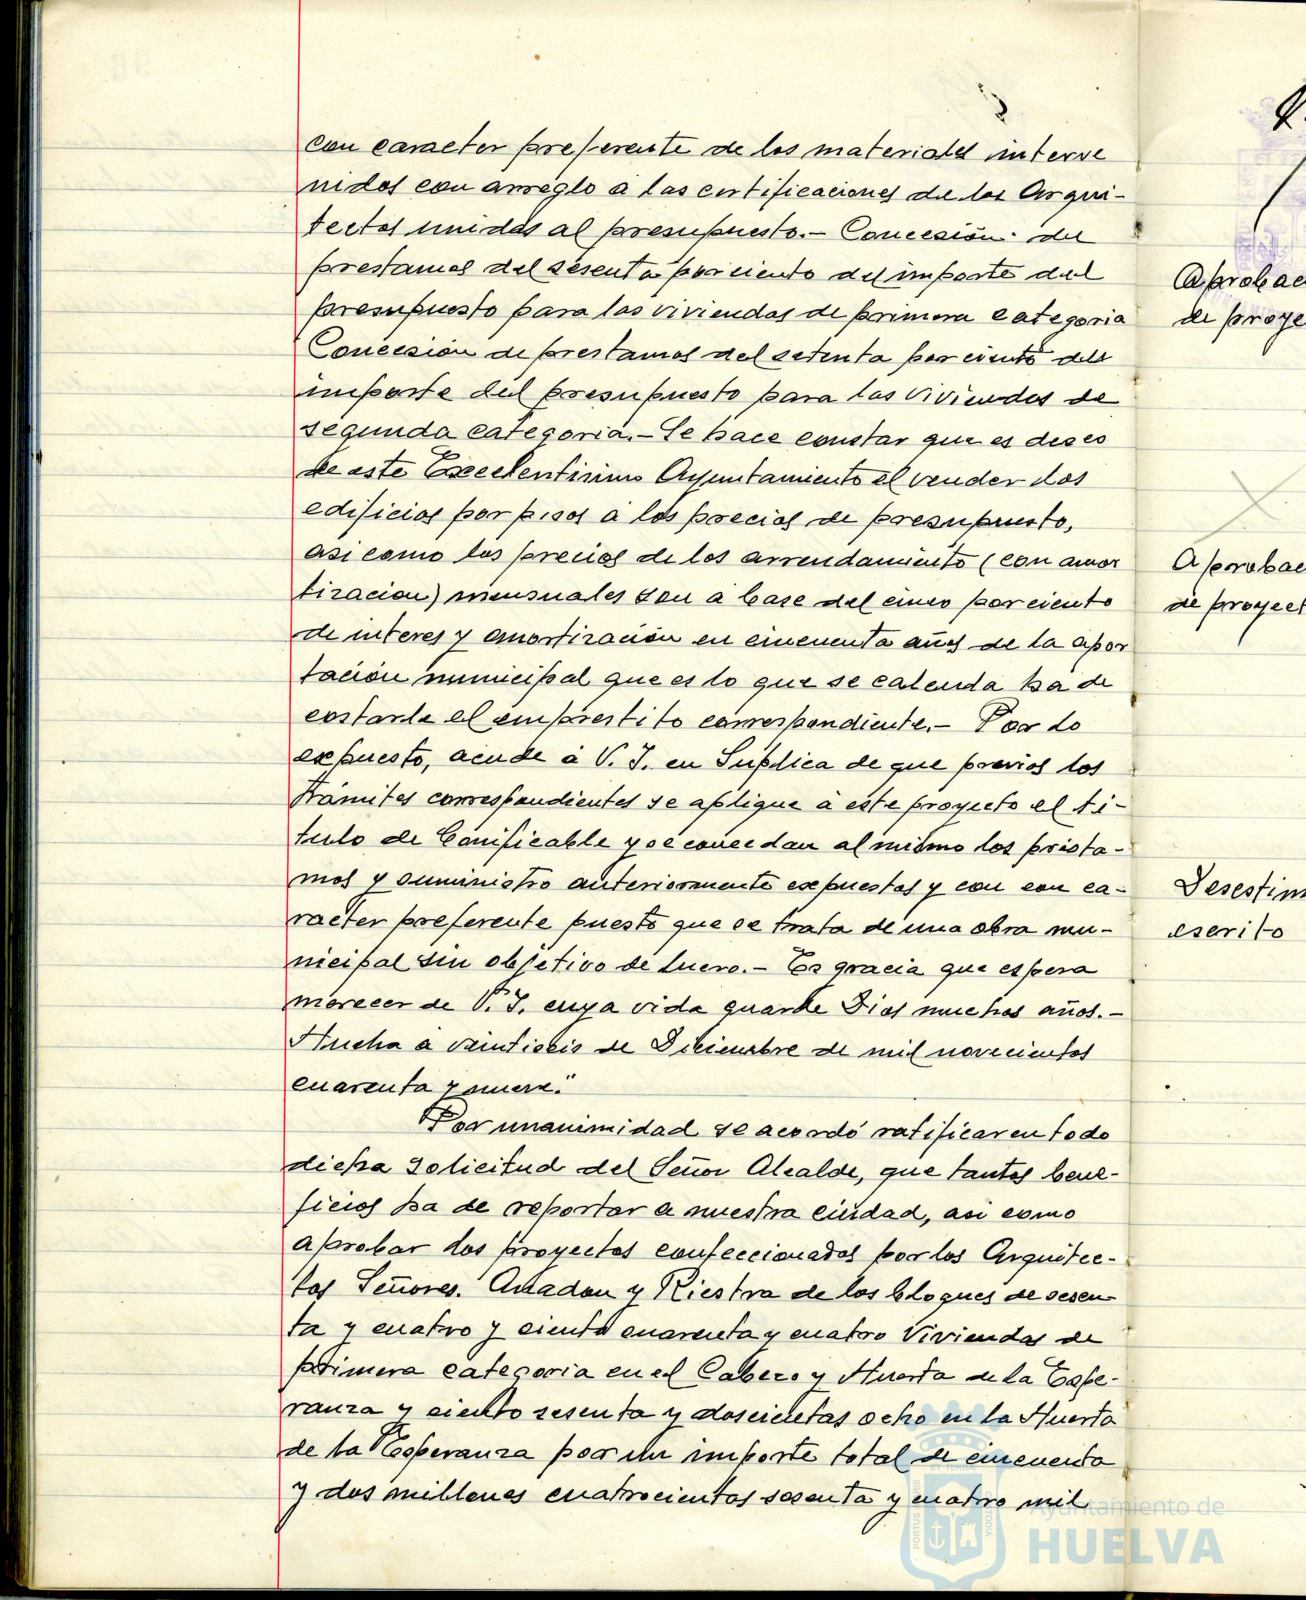 con caracter preferente de los materiales interve
nidos con arreglo a las certificaciones de los Arqui-
tectos unidas al presupuesto.- Concesión del
prestamos del sesenta por ciento del importe del
presupuesto para las viviendas de primera categoria
Concesión de prestamos del setenta por ciento del
importe del presupuesto para las viviendas de
segunda categoria.- Se hace constar que es deseo
de este Excelentisimo Ayuntamiento el vender los
edificios por pisos a los precios de presupuesto,
asi como los precios de los arrendamiento (con amor
tizacion) mensuales son a base del cinco por ciento
de interes y amortización en cincuenta años de la apor
tación municipal que es lo que se calcula ha de
costarle el emprestito correspondiente.- Por lo
expuesto, acude á V. I. en Suplica de que previos los
trámites correspondientes se aplique á este proyecto el tí-
tulo de bonificable y se concedan al mismo los présta-
mos y suministro anteriormente expuestos y con con ca-
racter preferente puesto que se trata de una obra mu-
nicipal sin objetivo de lucro.- Es gracia que espera
merecer de V. I. cuya vida guarde Dios muchos años.-
Huelva a veintiseis de Diciembre de mil novecientos
cuarenta y nueve."
Por unanimidad se acordó ratificar en todo
dicha solicitud del Señor Alcalde, que tantos bene-
ficios ha de reportar a nuestra ciudad, asi como
aprobar los proyectos confeccionados por los Arquitec-
tos Señores. Anadon y Riestra de los bloques de sesen-
ta y cuatro y ciento cuarenta y cuatro viviendas de
primera categoria en el Cabezo y Huerta de la Espe-
ranza y ciento sesenta y doscientas ocho en la Huerta
de la Esperanza por un importe total de cincuenta
y dos millones cuatrocientos sesenta y cuatro mil
Aprobac
de proye
Aprobac
de proyect
Desestim
escrito
Ayuntamiento de
HUELVA